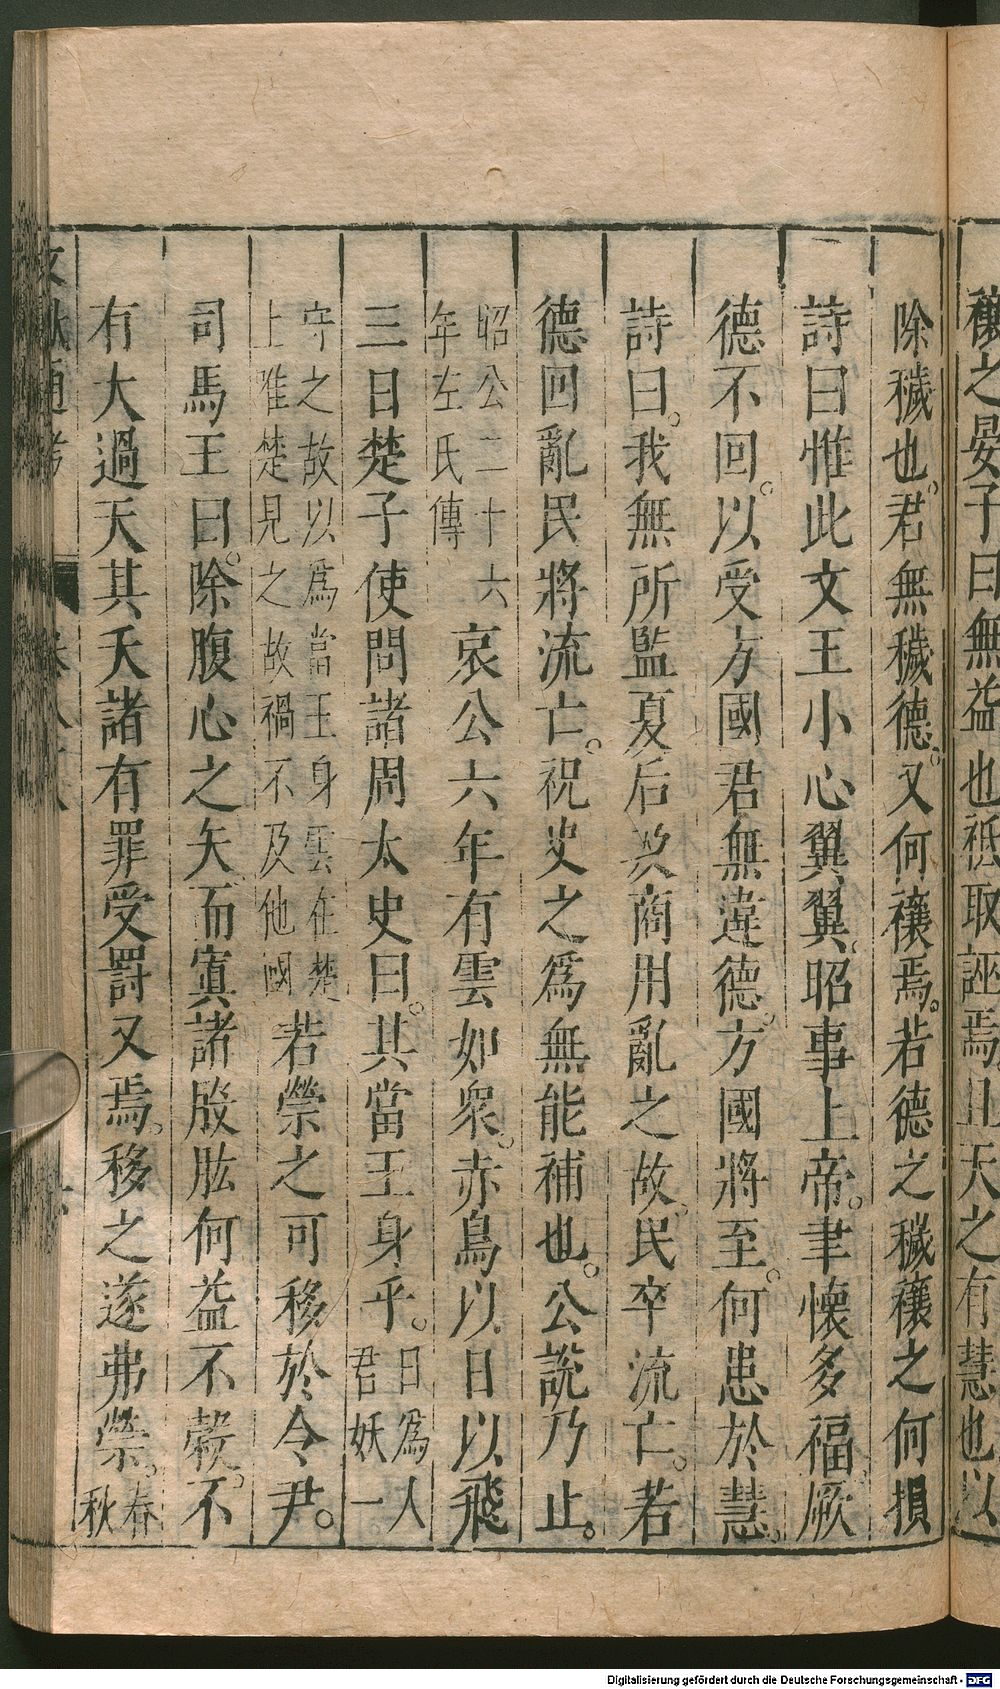 穰之晏子曰無益也祗取誣焉且天之有慧也以
除穢也。君無穢德。又何禳焉。若德之穢禳之何損
詩曰惟此文王小心翼翼昭事上帝。聿懷多福厥
德不回。以受方國君無違德。方國將至。何患於慧。
詩曰。我無所監夏后及商用亂之故民卒流亡。若
德回亂民將流亡。祝史之爲無能補也。公說乃止。
昭公二十六
年左氏傳
哀公六年有雲如衆。赤鳥以日以飛
三日楚子使問諸周太史曰。其當王身乎。
日爲人
君妖一
守之故以爲當王身雲在楚
上唯楚見之故禍不及他國
若禜之可移於令尹。
司馬王曰。除腹心之矢而寘諸股肱何益不穀。不
有大過天其夭諸有罪受罰又焉。移之遂弗禜。
春
秋
Digitalisierung gefördert durch die Deutsche Forschungsgemeinschaft - DFG